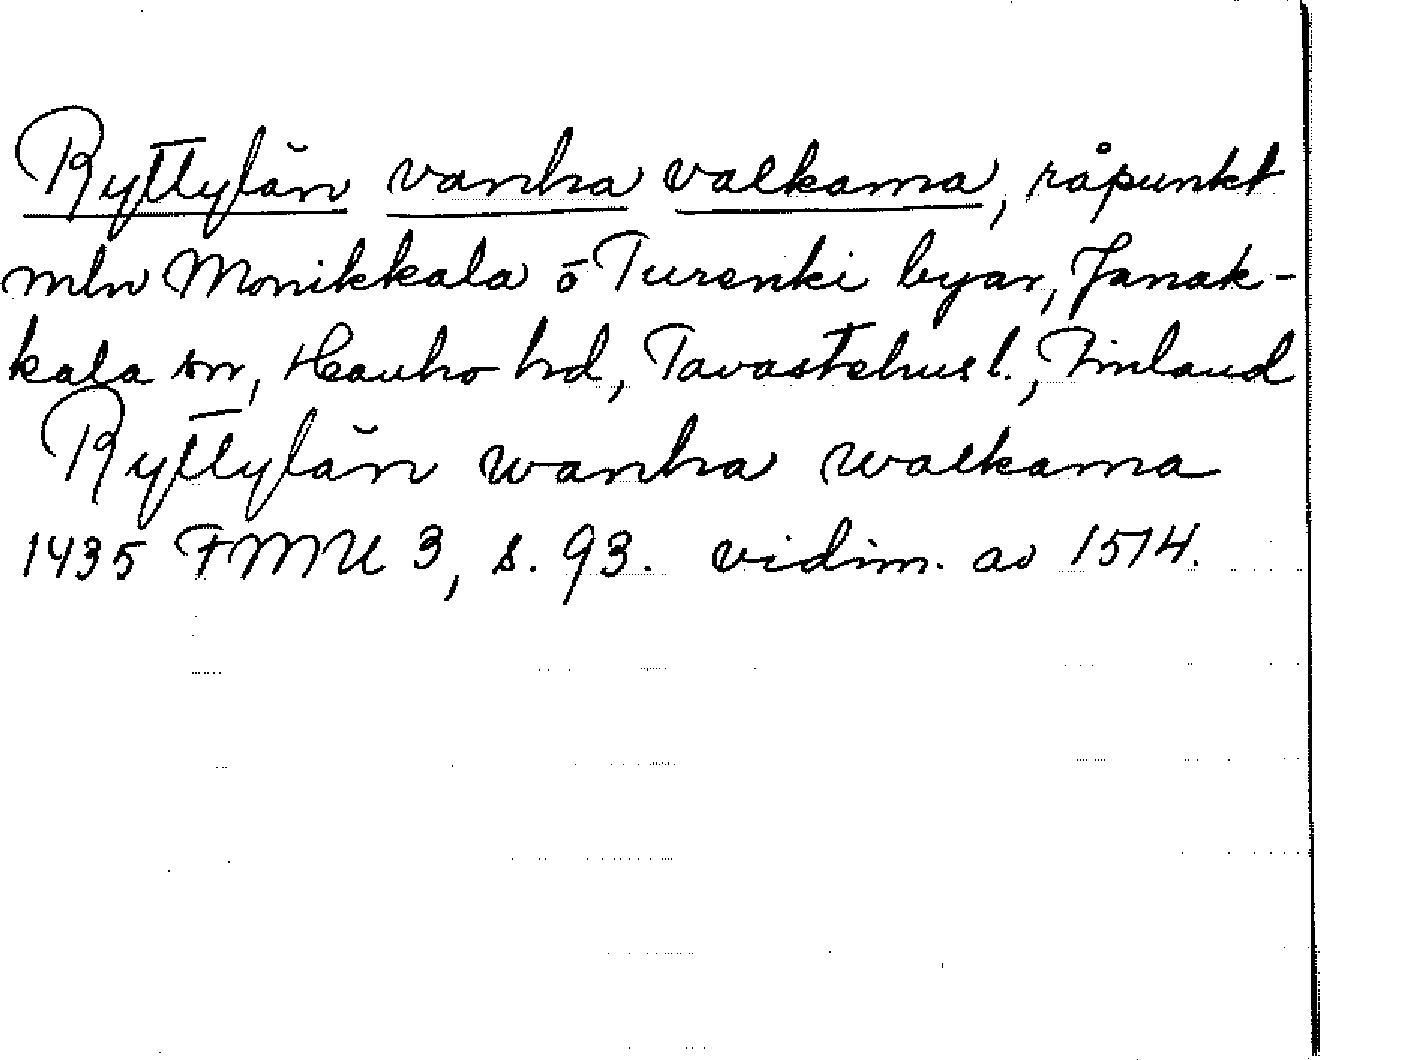 Ryttylän vanha valkama, råpunkt
mln Monikkala o Turenki byar, Janak-
kala sn, Hauho hd, Tavastehus l., Finland
Ryttylän wanha walkama
1435 FMU 3, s. 93. vidim. av 1514.